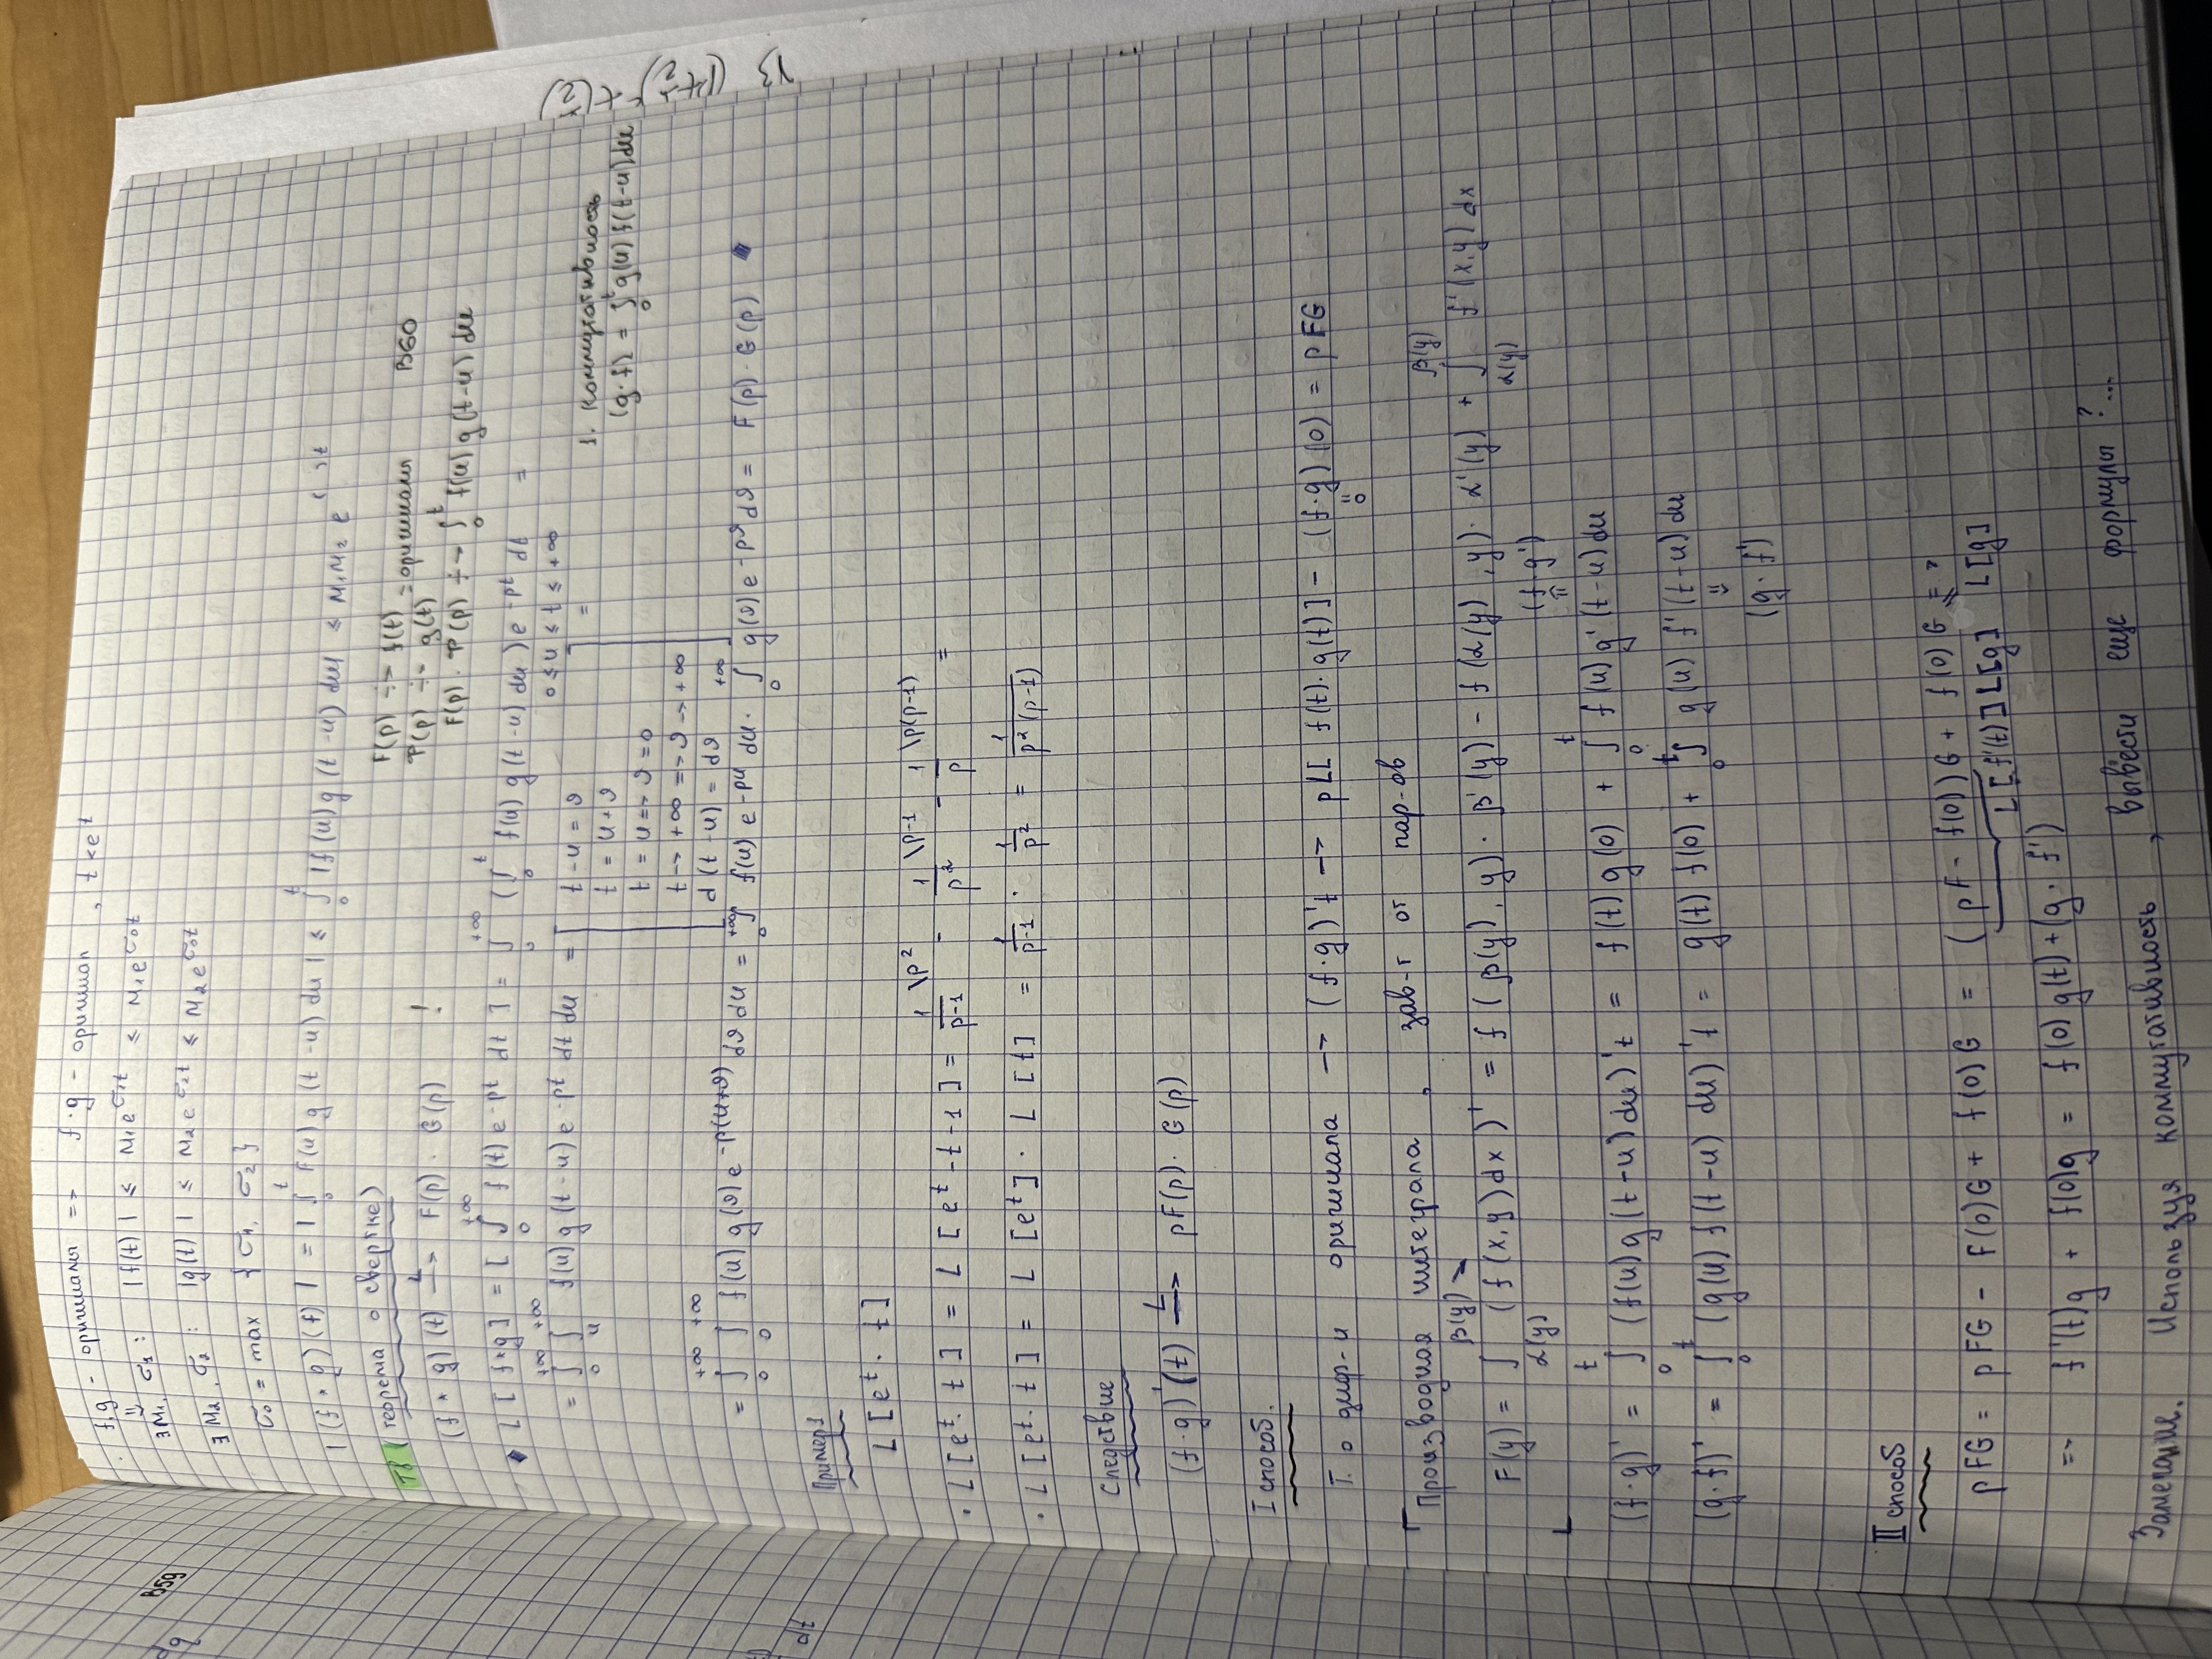 f,g - оригиналы => f·g - оригинал, t<e^t
∃M₁, σ₁ : |f(t)| ≤ M₁e^{σ₁t} ≤ M₁e^{σ₀t}
∃M₂, σ₂ : |g(t)| ≤ M₂e^{σ₂t} ≤ M₂e^{σ₀t}
σ₀ = max {σ₁, σ₂}
|(f*g)(t)| = |∫₀^t f(u)g(t-u)du| ≤ ∫₀^t |f(u)g(t-u)du| ≤ M₁M₂e^{( )t}
В59
T8 (теорема о свертке)
(f*g)(t) →^L F(p)·G(p) !
F(p) ÷> f(t)
P(p) ÷- g(t) = оригиналы В60
F(p)·P(p) ÷→ ∫₀^t f(u)g(t-u)du
L[f*g] = [∫₀^{+∞} f(t)e^{-pt}dt] = ∫₀^{+∞} (∫₀^t f(u)g(t-u)du)e^{-pt}dt =
0≤u≤t≤+∞
= ∫₀^{+∞} ∫_u^{+∞} f(u)g(t-u)e^{-pt}dtdu = [ t-u=ϑ
t = u+ϑ
t = u => ϑ=0
t → +∞ => ϑ → +∞
d(t-u) = dϑ ] =
1. Коммутативность
(g·f) = ∫₀^t g(u)f(t-u)du
= ∫₀^{+∞} ∫₀^{+∞} f(u)g(ϑ)e^{-p(u+ϑ)}dϑdu = ∫₀^{+∞} f(u)e^{-pu}du · ∫₀^{+∞} g(ϑ)e^{-pϑ}dϑ = F(p)·G(p)
Пример 1
L[e^t·t]
· L[e^t·t] = L[e^t-t-1] = 1/(p-1) \p² - 1/p² \p-1 - 1/p \p(p-1) =
· L[e^t·t] = L[e^t]·L[t] = 1/(p-1) · 1/p² = 1/(p²(p-1))
Следствие
(f·g)'(t) →^L pF(p)·G(p)
I способ.
Т. о диф-и оригинала → (f·g)'t → pL[f(t)·g(t)] - (f·g)(0) = pFG
0
Производная интеграла, зав-т от пар-ов
F(y) = ∫_{α(y)}^{β(y)} (f(x,y)dx)' = f(β(y),y)·β'(y) - f(α(y),y)·α'(y) + ∫_{α(y)}^{β(y)} f'(x,y)dx
(f·g')
(f·g)' = ∫₀^t (f(u)g(t-u)du)'t = f(t)g(0) + ∫₀^t f(u)g'(t-u)du
(g·f)' = ∫₀^t (g(u)f(t-u)du)'t = g(t)f(0) + ∫₀^t g(u)f'(t-u)du
(g·f')
II способ
pFG = pFG - F(0)G + f(0)G = (pF - f(0))G + f(0)G =>
L[f'(t)]L[g] L[g]
=> f'(t)g + f(0)g = f(0)g(t)+(g·f')
Замечание. Используя коммутативность, вывести еще формулы?...